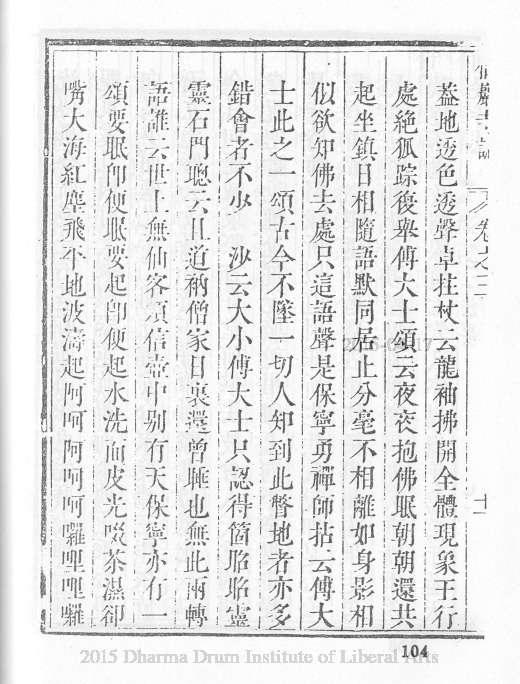 葢地透色透聲卓拄杖云龍袖拂開全體現象王行
處絶狐踪復舉傅大士頌云夜夜抱佛眠朝朝還共
起坐鎮日相隨語默同居止分毫不相離如身影相
似欲知佛去處只這語聲是保寧勇禪師拈云傅大
士此之一頌古今不墜一切人知到此瞥地者亦多
錯會者不少　沙云大小傅大士只認得箇昭昭靈
靈石門聰云且道衲僧家日裏還曾睡也無此兩轉
語誰云世上無仙客須信壺中别有天保寧亦有一
頌要眠即便眠要起即便起水洗面皮光啜茶濕卻
嘴大海紅塵飛平地波濤起阿呵阿呵呵囉哩哩囉
104
2015 Dharma Drum Institute of Liberal Arts